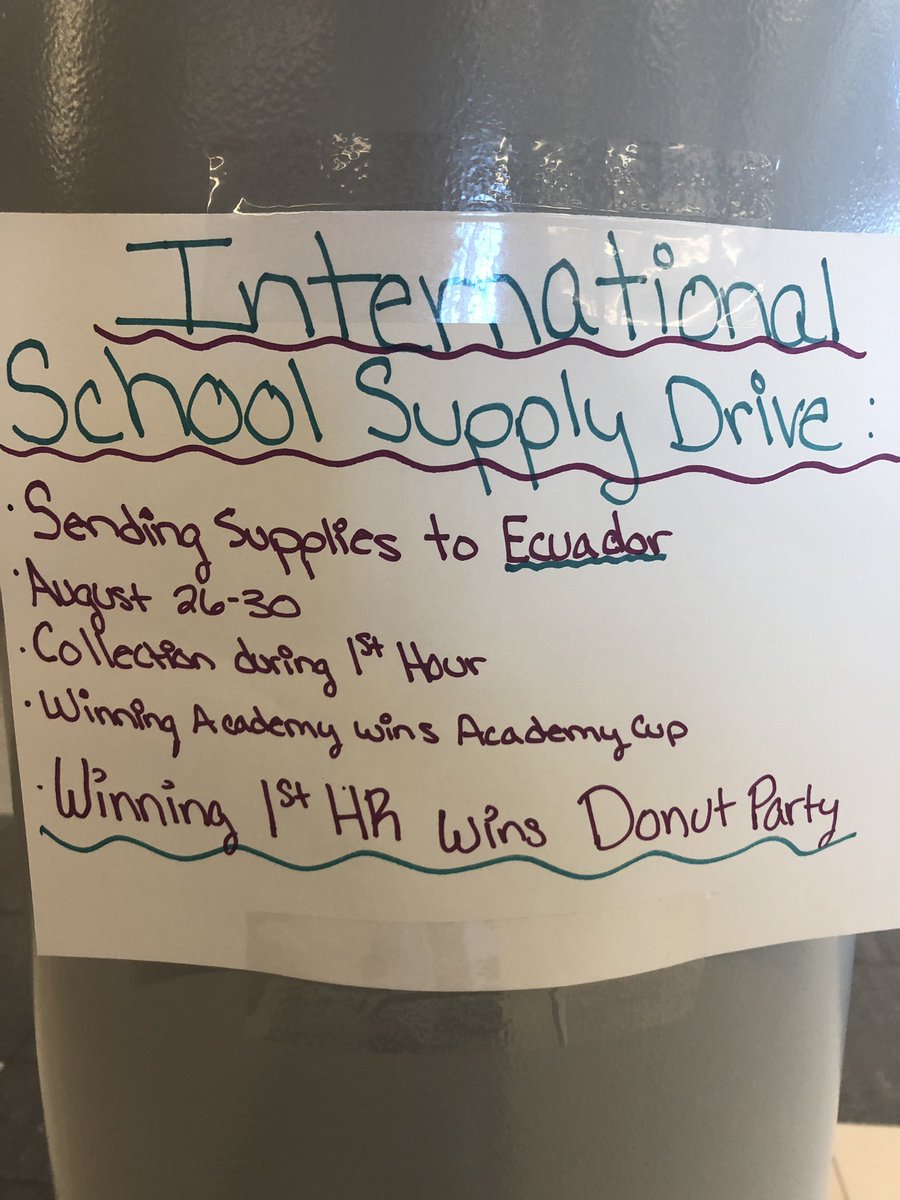 International
School Supply Drive:
· Sending Supplies to Ecuador
· August 26-30
· Collection during 1st Hour
· Winning Academy wins Academy Cup
· Winning 1st HR wins Donut Party